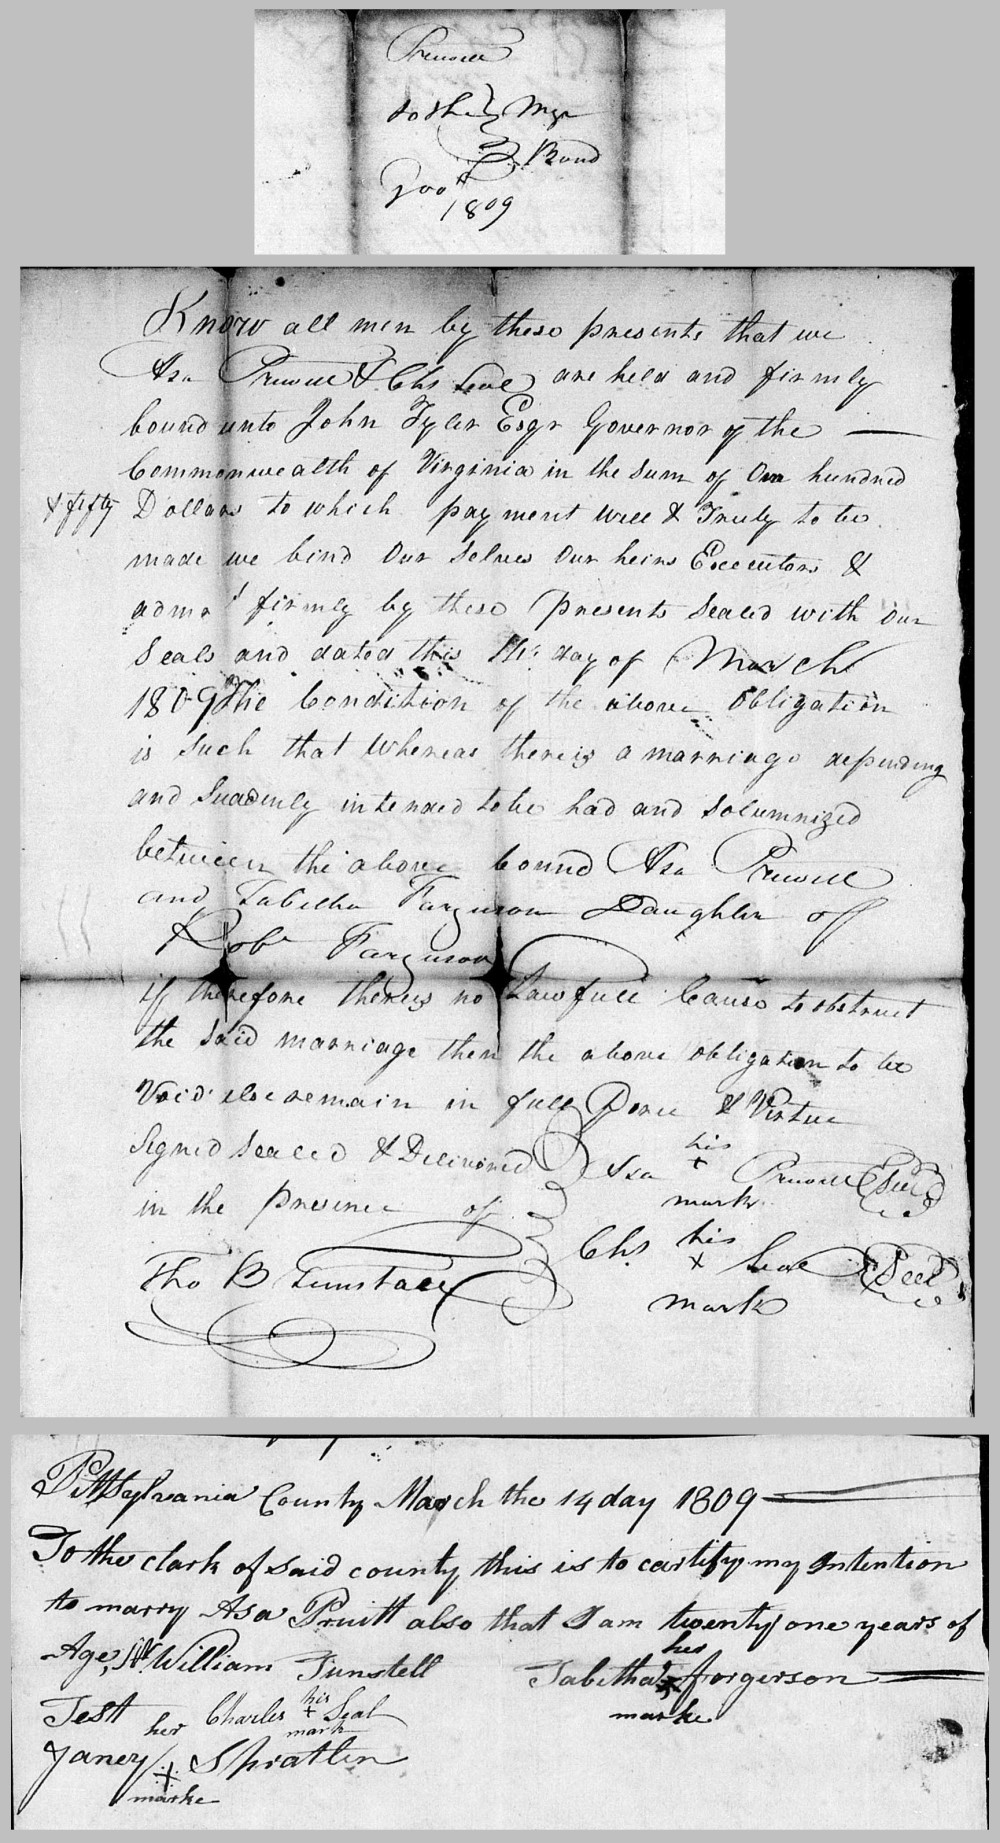 Pruwell
to the } Mge
Bond
Govr
1809
Know all men by these presents that we
Asa Pruwell & Chs Seal are held and firmly
bound unto John Tyler Esqr Governor of the
Commonwealth of Virginia in the sum of One hundred
& fifty Dollars to which payment Will & Truly to be
made we bind Our Selves Our heirs Executors &
admrs firmly by these Presents Sealed with Our
Seals and dated this 14th day of March
1809 The Condition of the above Obligation
is Such that Whereas there is a marriage depending
and Suddenly intended to be had and Solemnized
between the above bound Asa Pruwell
and Tabitha Farguson Daughter of
Robt Farguson
if therefore there is no Lawfull Cause to obstruct
the said marriage then the above obligation to be
Void else remain in full Force & Virtue
Signed Sealed & Delivered } Asa his + mark Pruwell Seal
in the presence of
Tho B Tunstall Chs his x mark Seal Seal
Pittsylvania County March the 14 day 1809
To the clark of said county this is to cartify my Intention
to marry Asa Pruitt also that I am twenty one years of
Age, Mr William Tunstell Tabitha her + marke forgerson
Test Charles his + mark Seal
Janey her + marke Spratlin